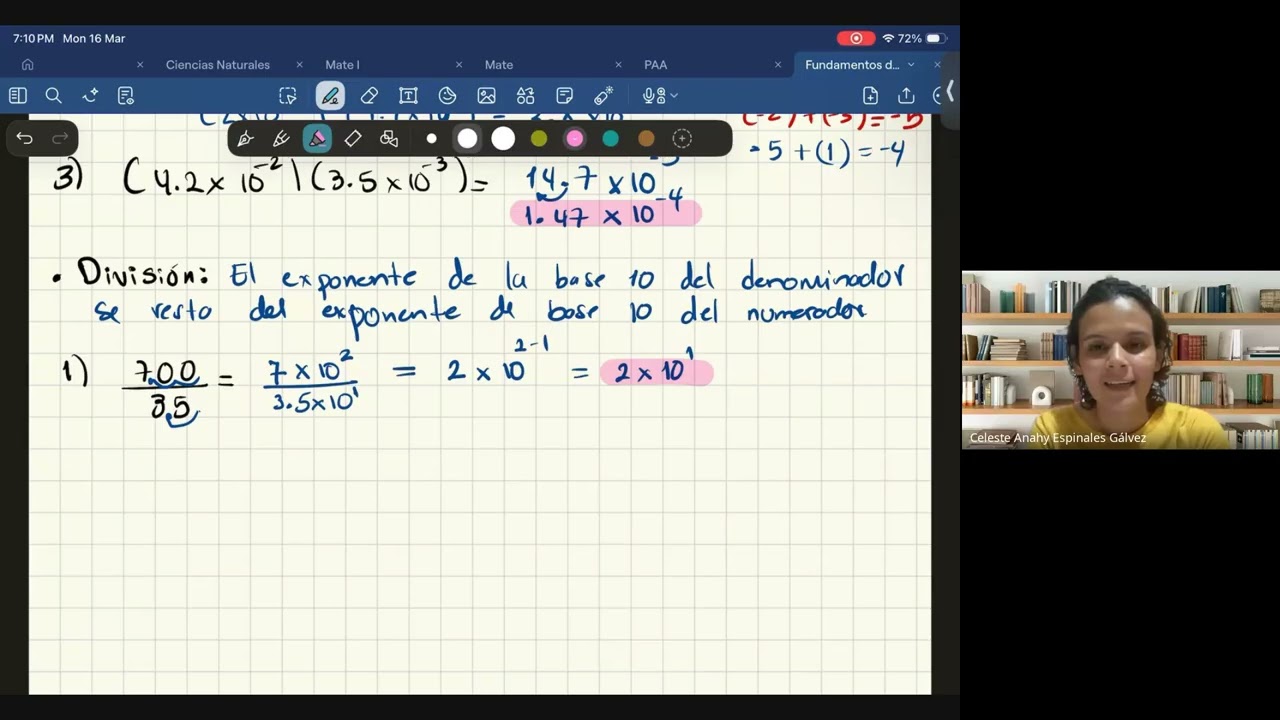 7:10 PM Mon 16 Mar
72%
Ciencias Naturales
Mate I
Mate
PAA
Fundamentos d...
(-2)+(-3)=-5
-5+(1)=-4
3) (4.2x10⁻²)(3.5x10⁻³)= 14.7 x10⁻⁵
1.47 x 10⁻⁴
• División: El exponente de la base 10 del denominador
se resta del exponente de base 10 del numerador
1) 700/35 = 7x10²/3.5x10¹ = 2 x 10²⁻¹ = 2 x 10¹
Celeste Anahy Espinales Gálvez